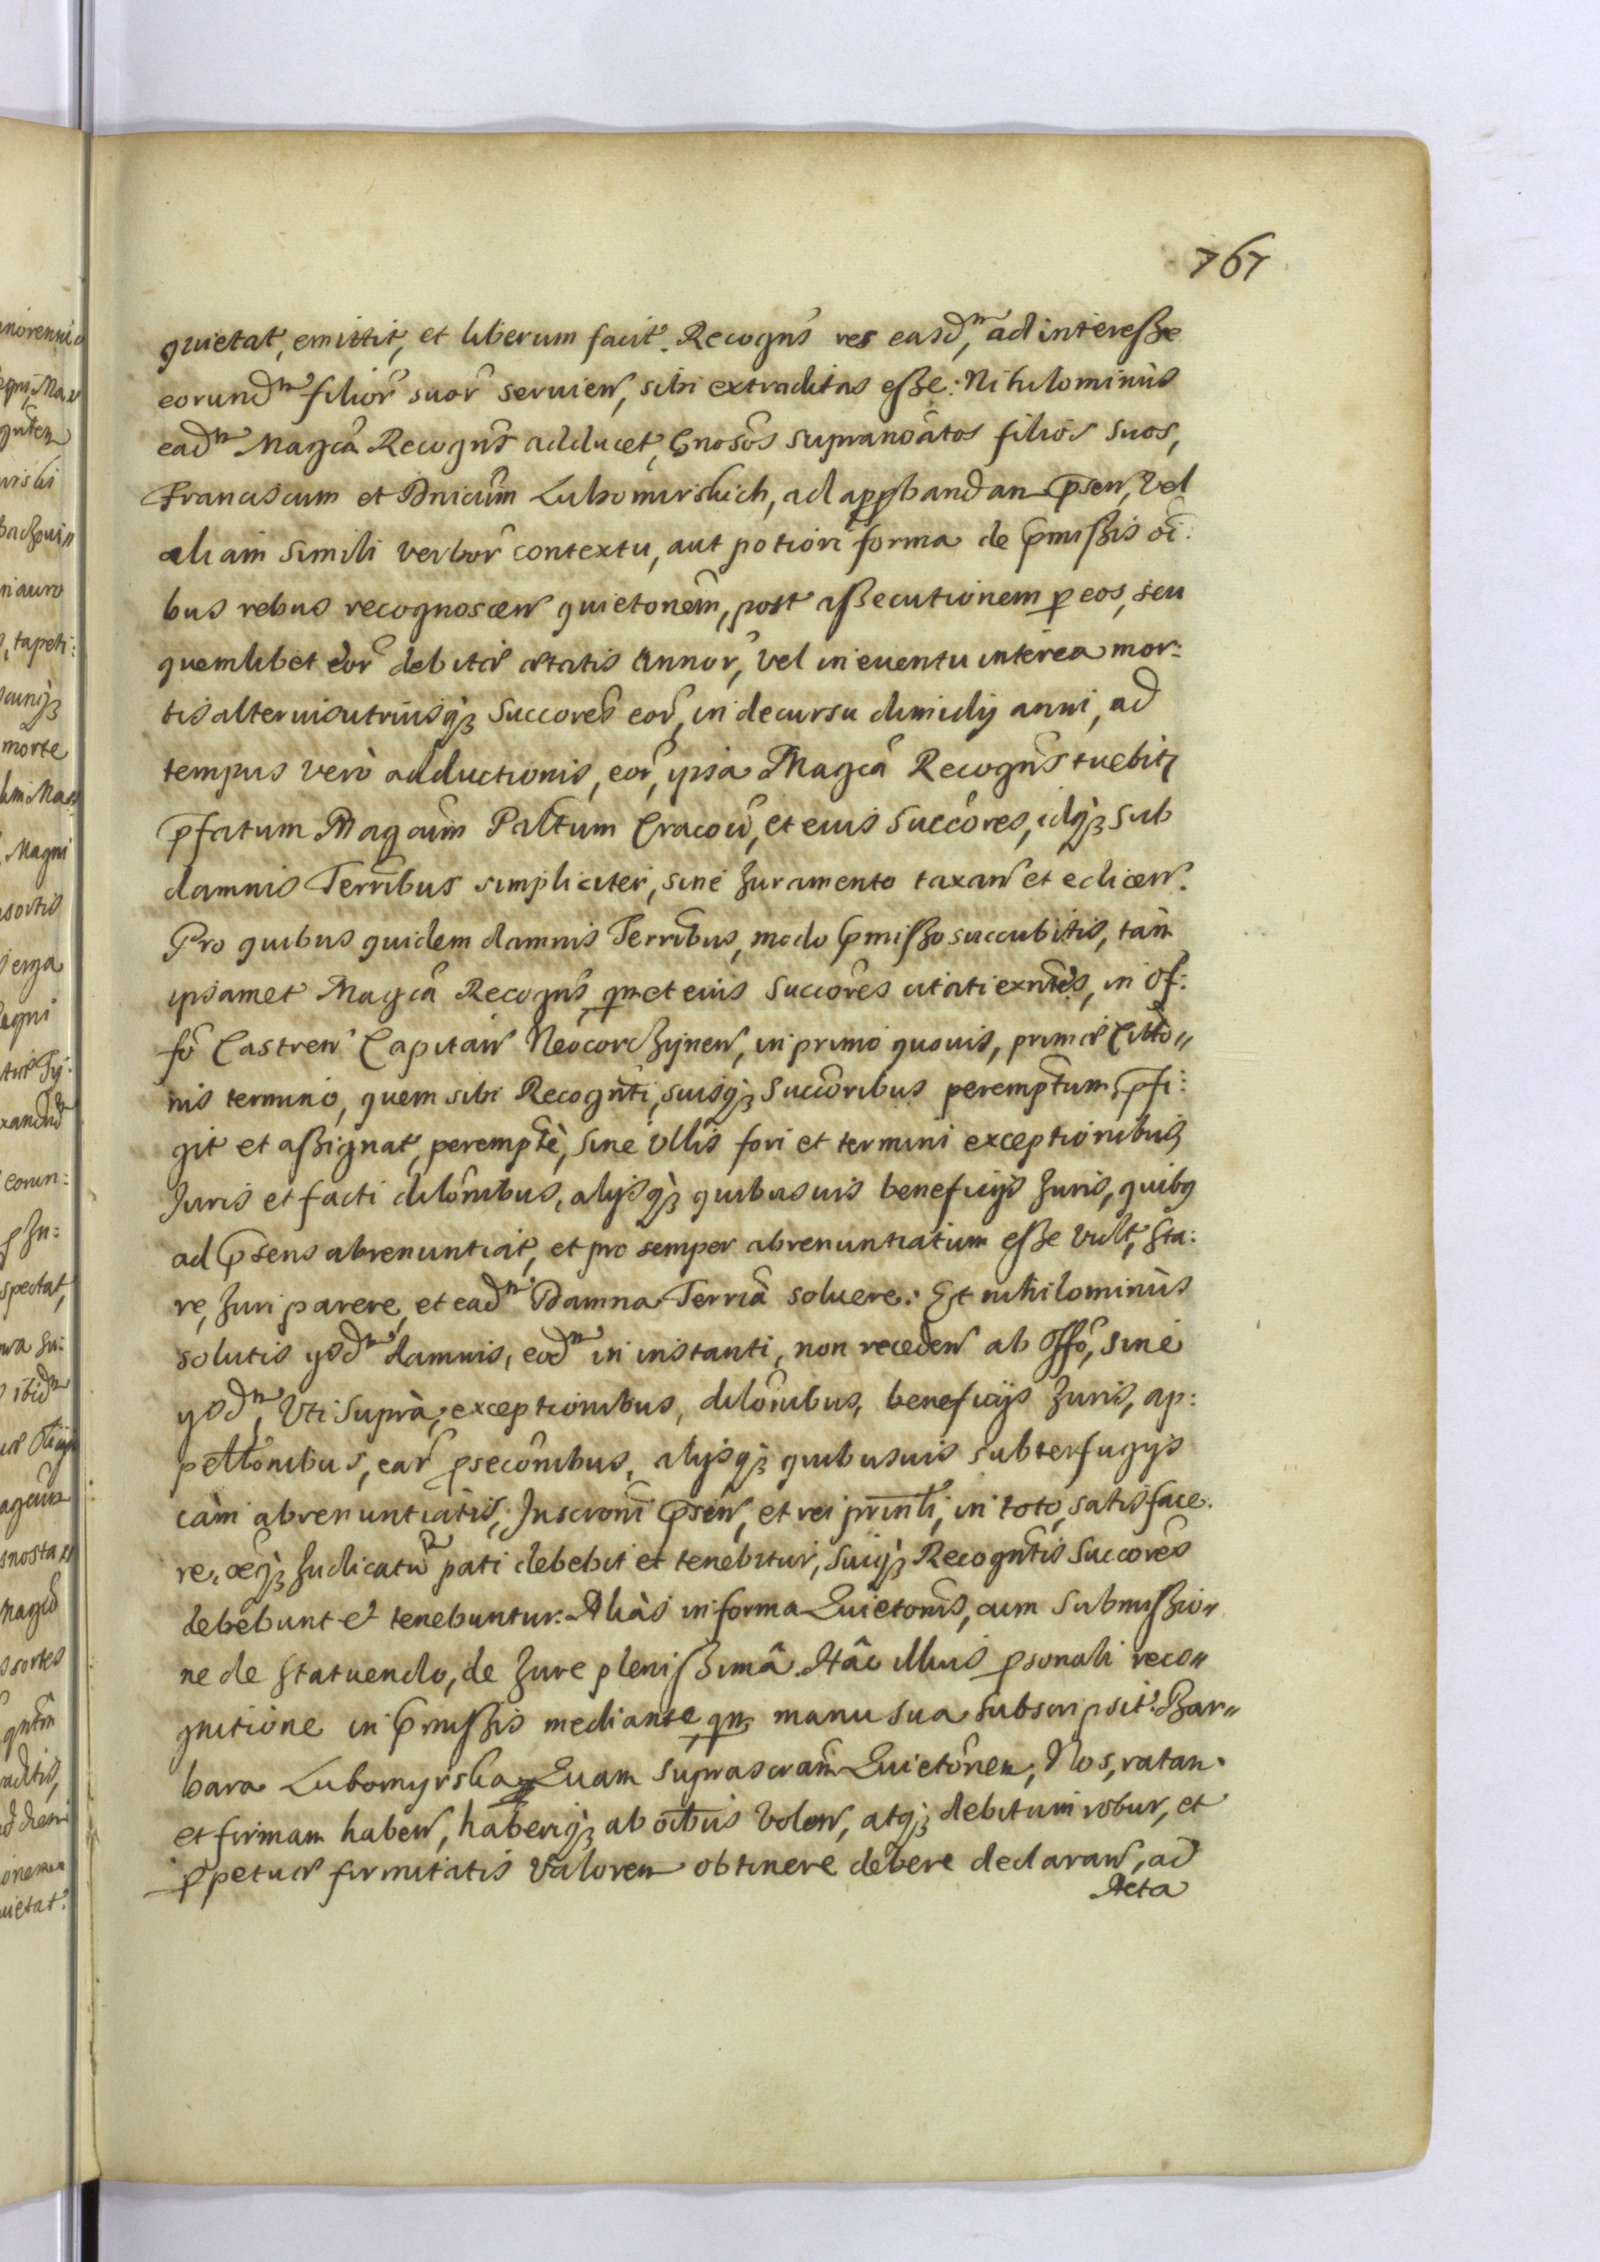 767
quietat, emittit, et liberum facit. Recogns̃ res easdm, ad interesse
eorundm filior̃ suor̃ servien̄, sibi extraditas esse: Nihilominùs
eadm Magca Recogns̃ adducet, Gnosos supranoãtos filios suos,
Franciscum et Dnicũm Lubomirskich, ad approbandan p̃sen̄, vel
aliam simili verbor̃ contextu, aut potiori forma de p̃missis oĩ:
bus rebus recognoscen̄ quietonẽm, post assecutionem p eos, seu
quemlibet eor̃ debitæ ætatis Annor̃, vel in eventu interea mor:
tis alterius utriusq̀ꝫ Succores̃ eor̃, in decursu dimidij anni, ad
tempus verò adductionis, eor̃, ipsa Magcã Recogns̃ tuebitꝛ
p̃fatum Magcũm Paltũm Cracoũ, et eius Succores̃, idq̀ꝫ sub
damnis Terrĩbus simpliciter, sine Juramento taxan̄ et edicen̄.
Pro quibus quidem damnis Terrĩbus, modo p̃misso succubitis, tam̃
ipsamet Magcã Recogns̃, qm̃ et eius Succores̃ citati exñtes, in Of:
fõ Castren̄ Capitan̄ Neocorchynen̄, in primo quovis, primæ Citto̴
nis termino, quem sibi Recognti, suisq̀ꝫ Succoribus peremptum, p̃fi:
git et assignat, peremptè, sine ullis fori et termini exceptionibus
Juris et facti dilonibus, alijsq̀ꝫ quibusvis beneficijs Juris, quibꝯ
ad p̃sens abrenuntiat, et pro semper abrenuntiatum esse vult, sta:
re, Juri parere, et eadm Damna Terriã solvere. Et nihilominùs
solutis ysdm damnis, eodm in instanti, non receden̄ ab Offo, sine
ysdm, uti suprà, exceptionibus, dilonibus, beneficijs Juris, ap:
pellonibus, ear̃ p̱seconibus, alijsq̀ꝫ quibusvis subterfugijs
cam̃ abrenuntiatis, Inscroni p̃sen̄, et rei prinli, in toto, satisface:
re, æq̀ꝫ Judicatũ pati debebit et tenebitur, suiq̀ꝫ Recogntis Succores̃
debebunt et tenebuntur. Aliàs in forma Quietonis, cum submissio̴
ne de statuendo, de Jure plenissimâ. Hâc illius p̱sonali reco̴
gnitione in p̃missis mediante, qm̃ manu sua subscripsit. Bar̴
bara Lubomyrska Quam suprascram̃ Quietonem, Nos, ratam
et firmam haben̄, haberiq̀ꝫ ab oĩbus volen̄, atq̀ꝫ debitum robur, et
p̱petuæ firmitatis valorem obtinere debere declaran̄, ad
Acta